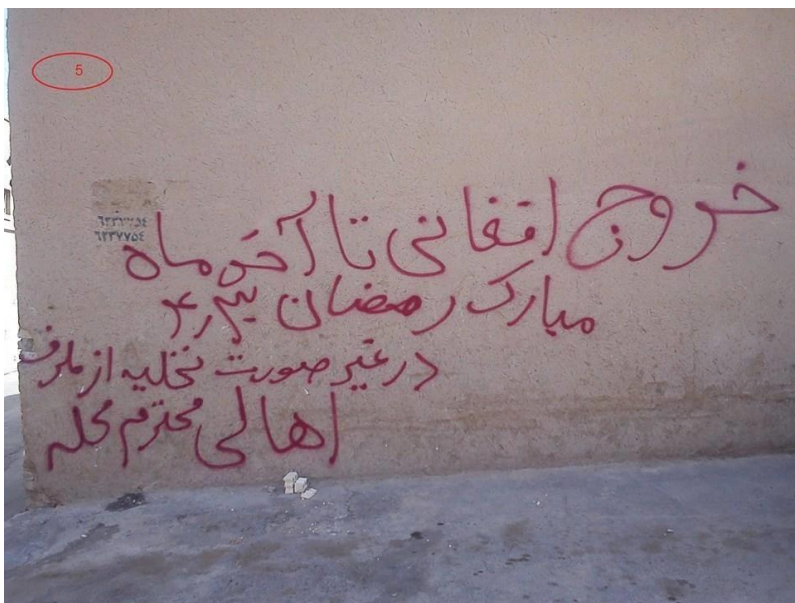 5
۶۲۳۷۷۵۴
خروج افغانی تا آخر ماه
مبارک رمضان
در غیر صورت تخلیه از طرف
اهالی محترم محله